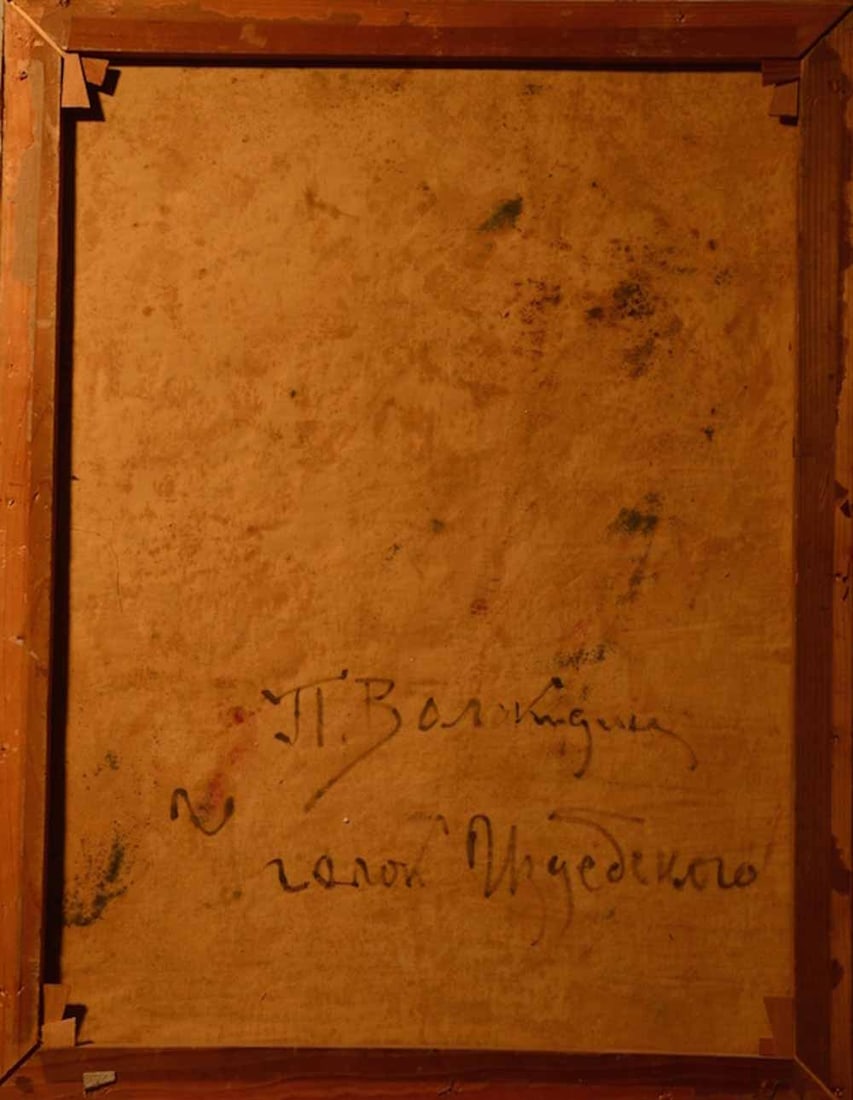 П. Волокидин
салон Издебского